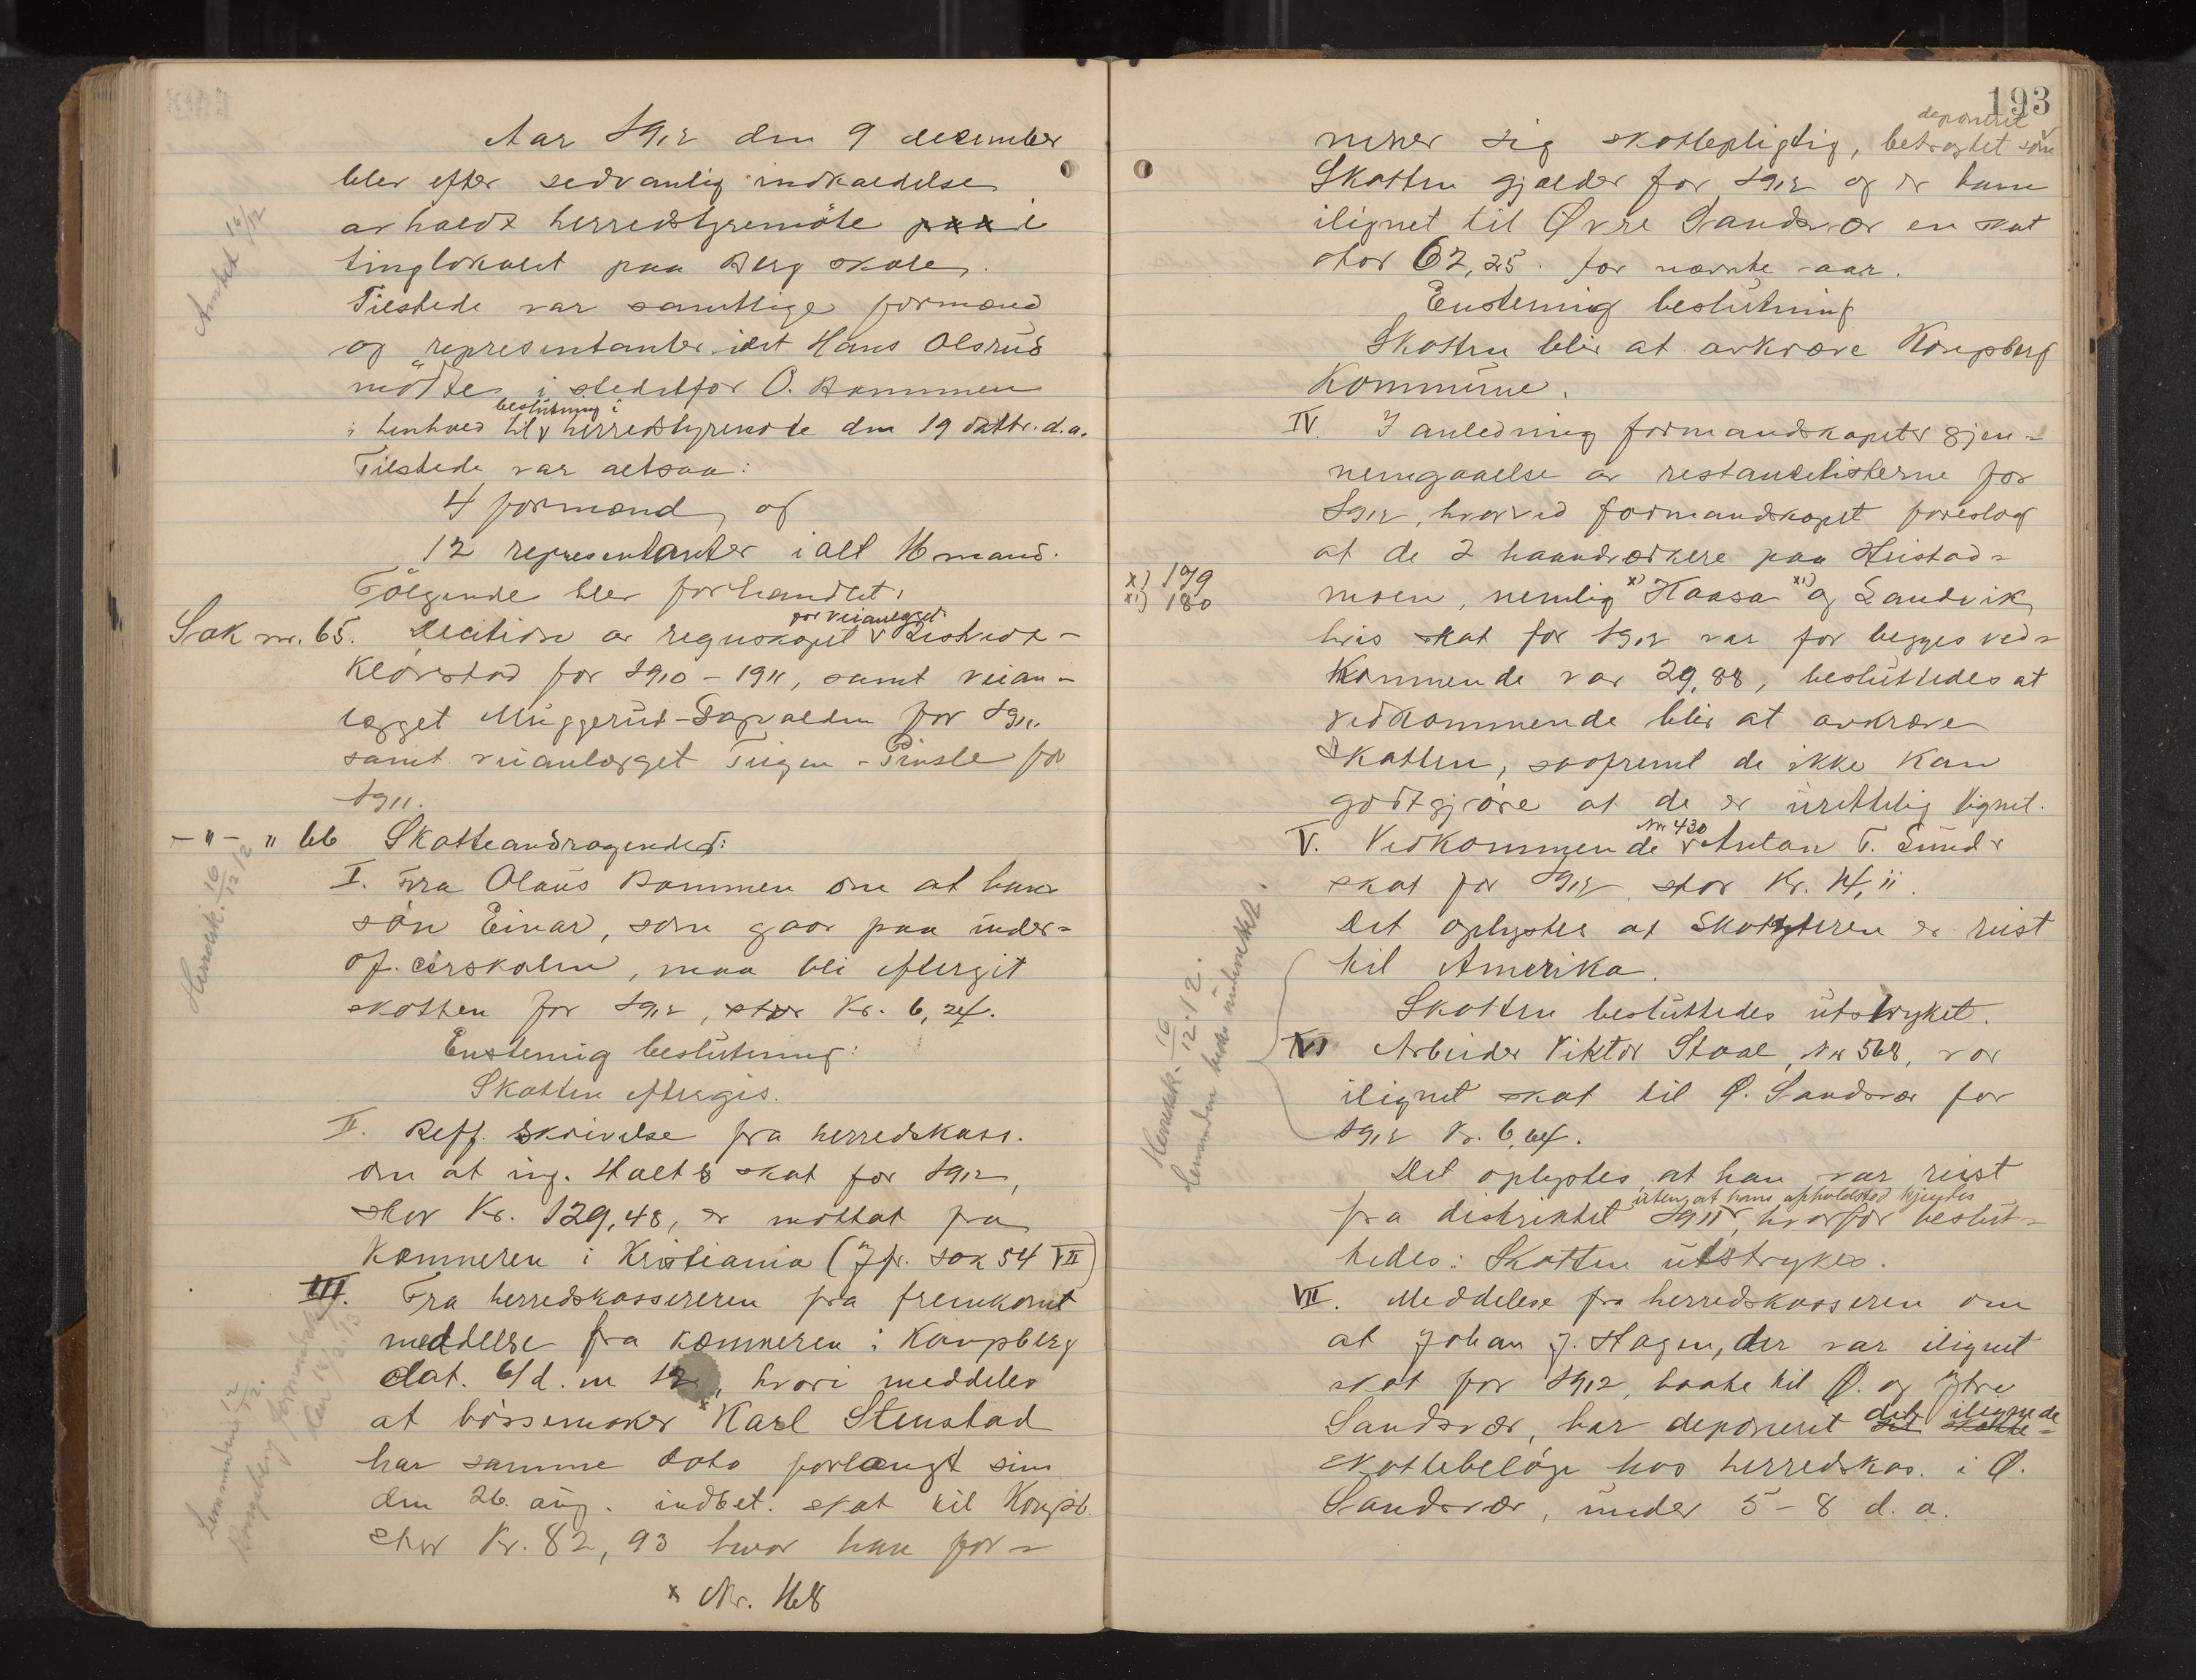 Aar 1912 den 9 december
blev efter sedvanlig indkaldelse
avholdt herredstyremöte paa i
tinglokalet paa Berg skole.
Tilstede var samtlige formænd
og representanter idet Hans Olsrud
mötte i stedetfor O. Bammen
beslutning i
i henhold til v herredstyremöte den 19 oktbr. d.a.
Tilstede var altsaa:
4 formænd, og
12 representanter ialt 16 mand.
Følgende blev forhandlet:
for veianlægget
Sak nr. 65. Decition av regnskapet v
Klövstad for 1910 - 1911, samt veian-
lægget Muggerud - for 1911
samt veianlægget Teigen - Tinsle for
1911.
- " - " 66 Skatteandragender:
I. Fra Olaus Bammen om at hans
sön Einar, som gaar paa under-
of.cérskolen, maa bli eftergit
skatten for 1912, stor Kr. 6,24.
Enstemig beslutning:
Skatten eftergis.
II. Reff. skrivelse fra herredskass.
om at ing. Holts skat for 1912,
stor Kr. 129,48, er mottat fra
Kæmneren i Kristiania (Jfr. sak 54 VII)
III. Fra herredskassereren fra fremkomt
meddelse fra kæmneren i Kongsberg
dat. 6/d. m 12, hvori meddeles
at börsemaker x Karl Stenstad
har samme dato forlangt sin
den 26. aug. indbet. skat til Kongsb.
stor Kr. 82,93 hvor han for-
x Nr. 168
Anket 16/12
Herredsk. 16/12 12
Lensmanden 12/12.
Kongsberg formandskap
193
deponeret
mener sig skattepligtig, betragtet som v
Skatten gjælder for 1912 og er ham
ilignet til Øvre Sandsvær en skat
stor 62,25. for nævnte aar.
Enstemig beslutning
Skatten blir at avkræve Kongsberg
Kommune.
IV. I anledning formandskapets gjen-
nemgaaelse av restanselisterne for
1912, hvorved formandskapet foreslog
at de 2 haandværkere paa Heistad-
x) 179
x1) 180
moen, nemlig x) Haasa x1) og Sandvik
hvis skat for 1912 var for begges ved-
Kommende var 29,88, besluttedes at
vedkommende blir at avkræve
Skatten, saafremt de ikke kan
godtgjöre at de er urettelig lignet.
Nr. 430
V. Vedkommende v Anton T. Sund s
skat for 1912, stor Kr. 14,11.
Det oplystes at Skatyteren er reist
til Amerika.
Skatten besluttedes utstryket.
VI Arbeider Viktor Staal, Nr 568, var
ilignet skat til Ø. Sandsvær for
1912 Kr. 6,64.
Det oplystes at han var reist
uten at hans opholdsted kjendes
fra distriktet 1911 v, hvorfor beslut-
tedes: Skatten utstrykes.
VII. Meddelese fra herredskasseren om
at Johan J. Hagen, der var ilignet
skat for 1912, baade til Ø. og Ytre
Sandsvær, har deponeret det skatte- de ilignede
skattebelöp hos herredskas. i Ø.
Sandsvær, under 5 - 8 d. a.
Herredsk. 16/12.12.
Lensmanden bedes underrettet.